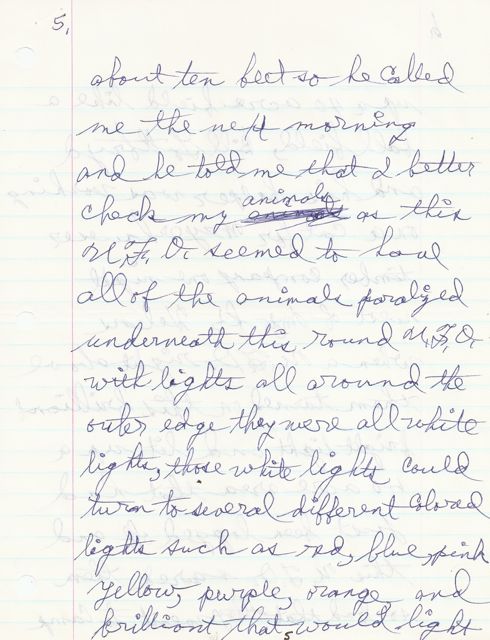 5.
about ten feet so he called
me the next morning
and he told me that I better
check my animals as this
U.F.O. seemed to have
all of the animals paralized
underneath this round U.F.O.
with lights all around the
outer edge they were all white
lights, those white lights could
turn to several different colored
lights such as red, blue, pink
yellow, purple, orange, and
brilliant that would light
5